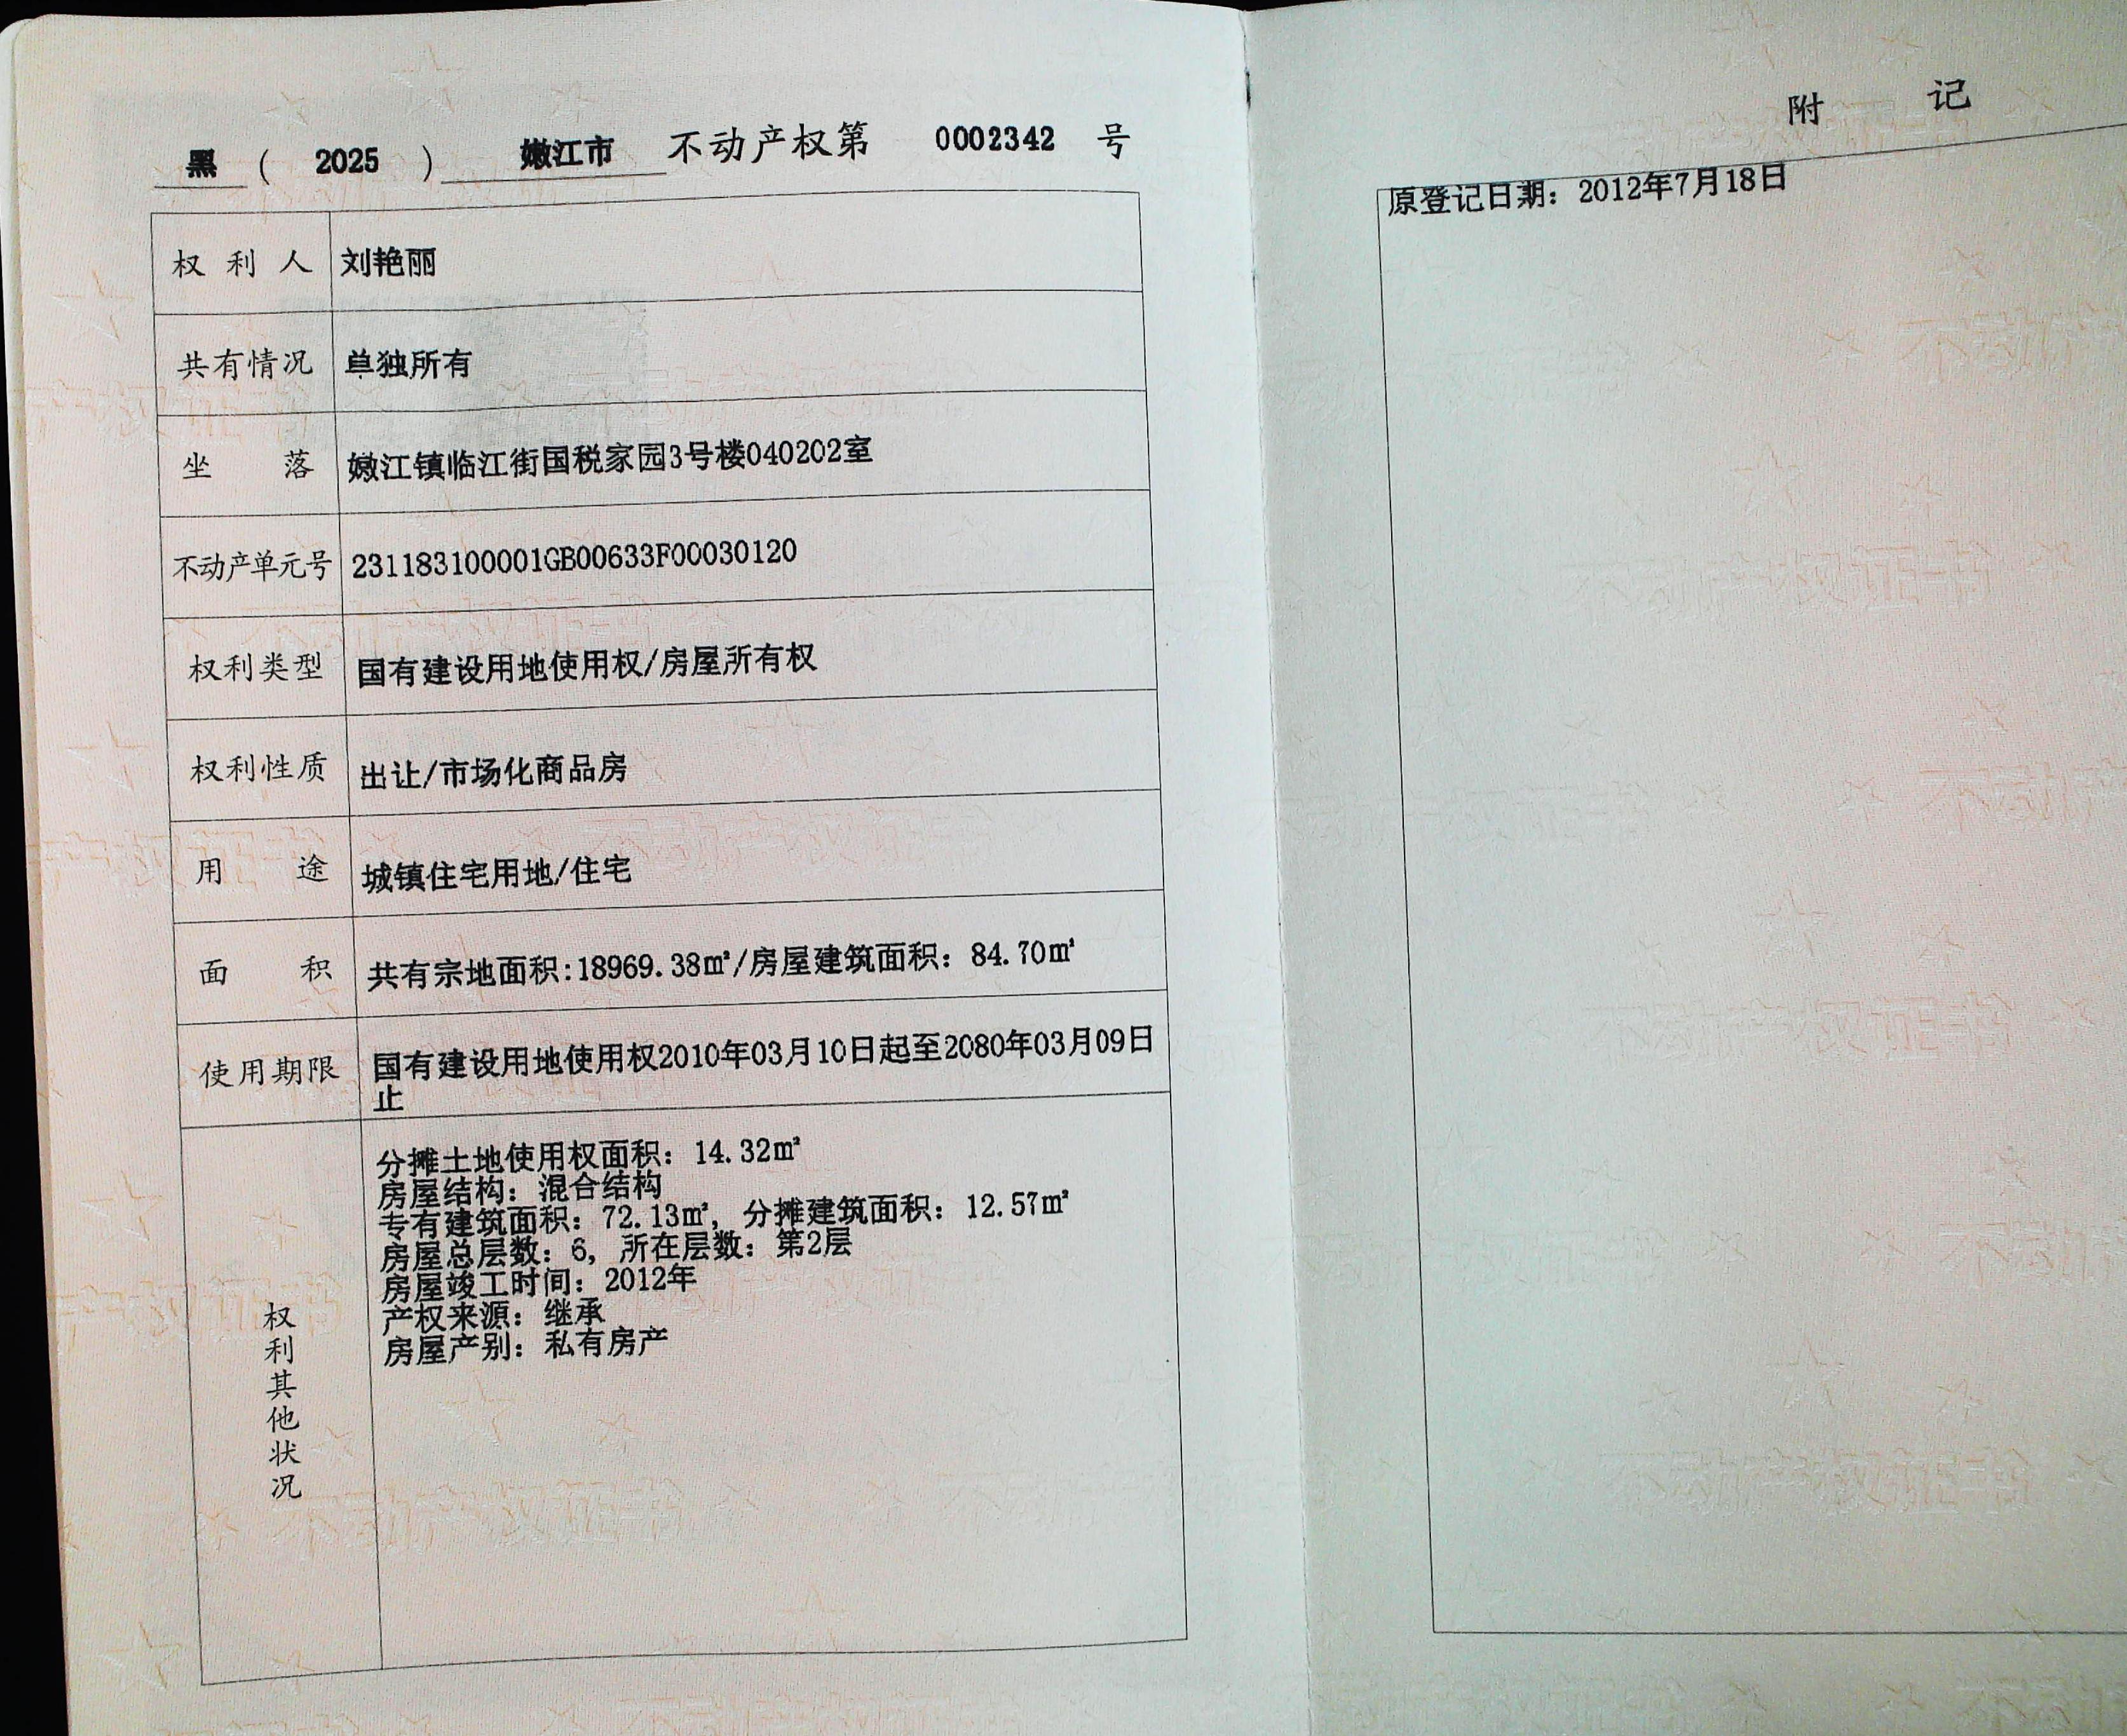 黑 ( 2025 ) 嫩江市 不动产权第 0002342 号
权利人 刘艳丽
共有情况 单独所有
坐落 嫩江镇临江街国税家园3号楼040202室
不动产单元号 231183100001GB00633F00030120
权利类型 国有建设用地使用权/房屋所有权
权利性质 出让/市场化商品房
用途 城镇住宅用地/住宅
面积 共有宗地面积:18969.38㎡/房屋建筑面积：84.70㎡
使用期限 国有建设用地使用权2010年03月10日起至2080年03月09日
止
权利其他状况
分摊土地使用权面积：14.32㎡
房屋结构：混合结构
专有建筑面积：72.13㎡，分摊建筑面积：12.57㎡
房屋总层数：6，所在层数：第2层
房屋竣工时间：2012年
产权来源：继承
房屋产别：私有房产
附记
原登记日期：2012年7月18日